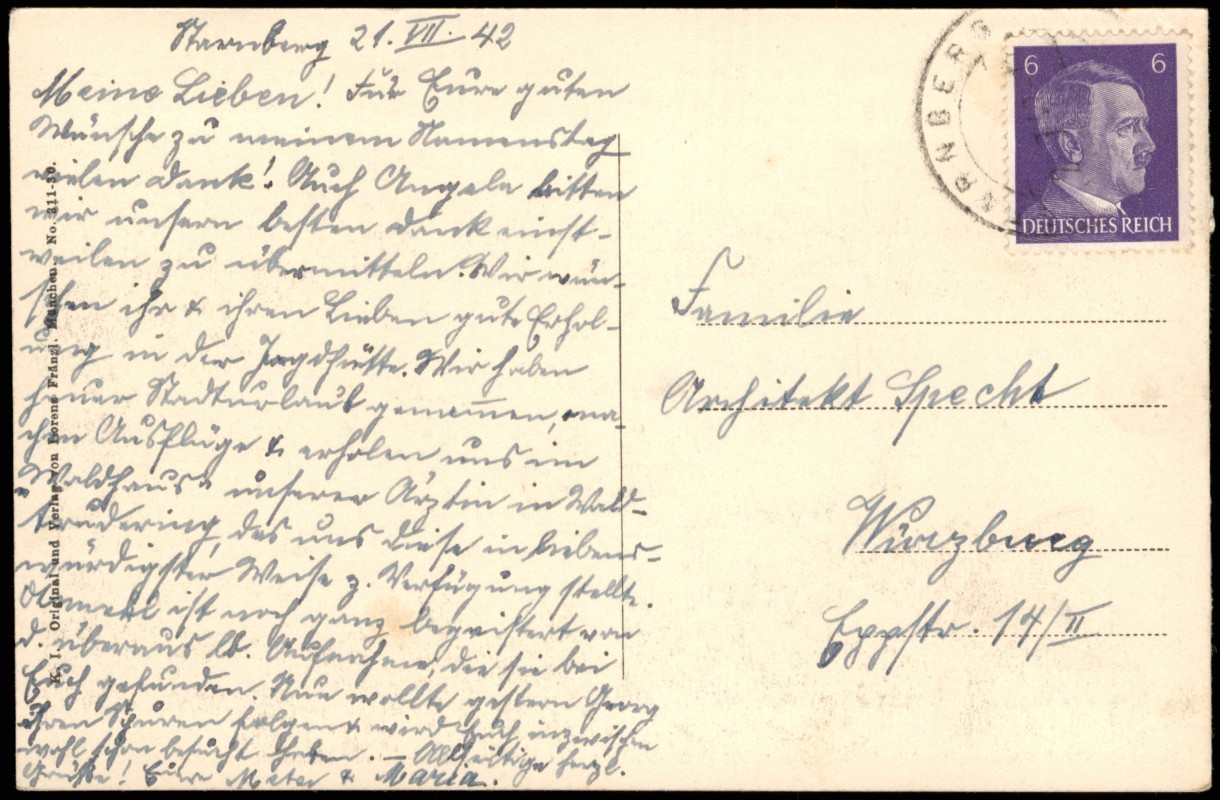 Starnberg 21. VII. 42
Meine Lieben! Für Eure guten
Wünsche zu meinem Namenstag
vielen Dank! Auch Angela bitten
wir unsern besten Dank einst-
weilen zu übermitteln. Wir wün-
schen ihr & ihren Lieben gute Erhol-
ung in der Jagdhütte. Wir haben
heuer Stadturlaub genommen, ma-
chen Ausflüge & erholen uns im
"Waldhaus" unserer Ärztin in Wald-
trudering, das uns diese in liebens-
würdigster Weise z. Verfügung stellte.
ist noch ganz begeistert von
d. überaus lb. Aufnahme, die sie bei
Euch gefunden. Nun wollte gestern Georg
ihren Spuren folgen & wird Euch inzwischen
wohl schon besucht haben. – Allseitige herzl.
Grüße! Eure & Maria.
K. L. Original und Verlag von Lorenz Fränzl. München No. 311-30.
STARNBERG
6 6
DEUTSCHES REICH
Familie
Architekt Specht
Würzburg
Eppstr. 14/II